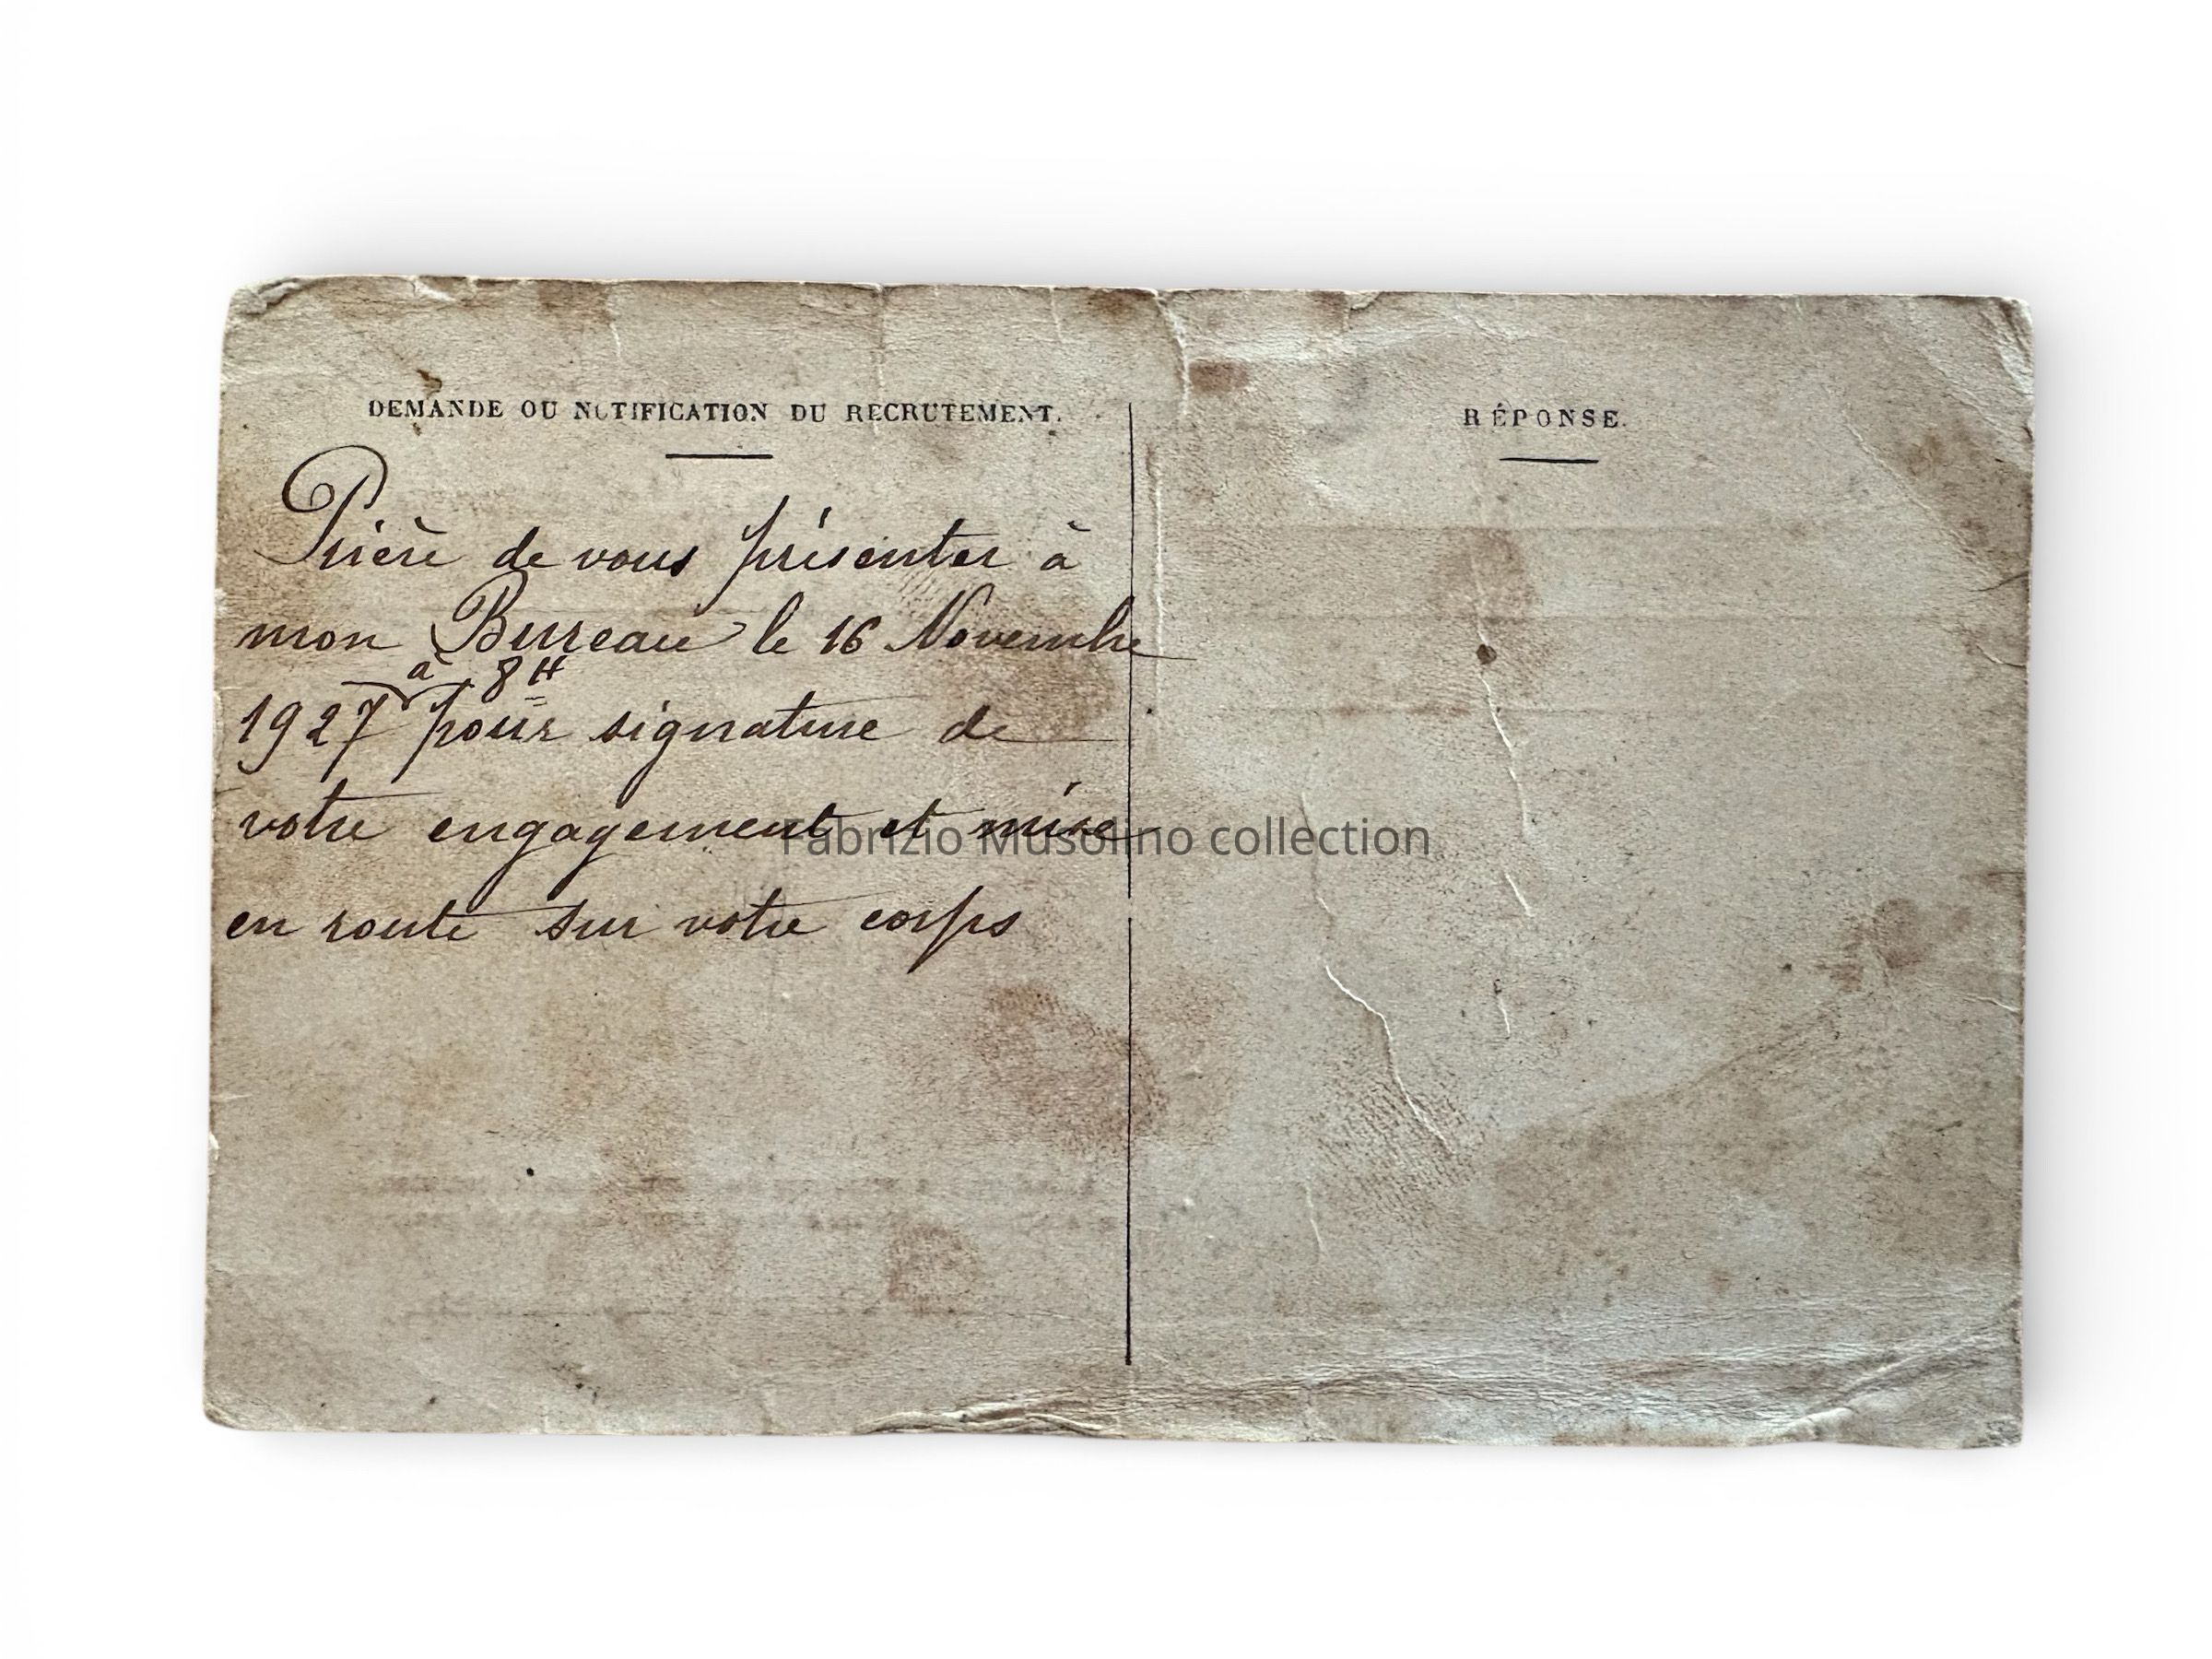 DEMANDE OU NOTIFICATION DU RECRUTEMENT.
Prière de vous présenter à
mon Bureau le 16 Novembre
à 8H
1927 pour signature de
votre engagement et mise
en route sur votre corps
RÉPONSE.
Fabrizio Musolino collection